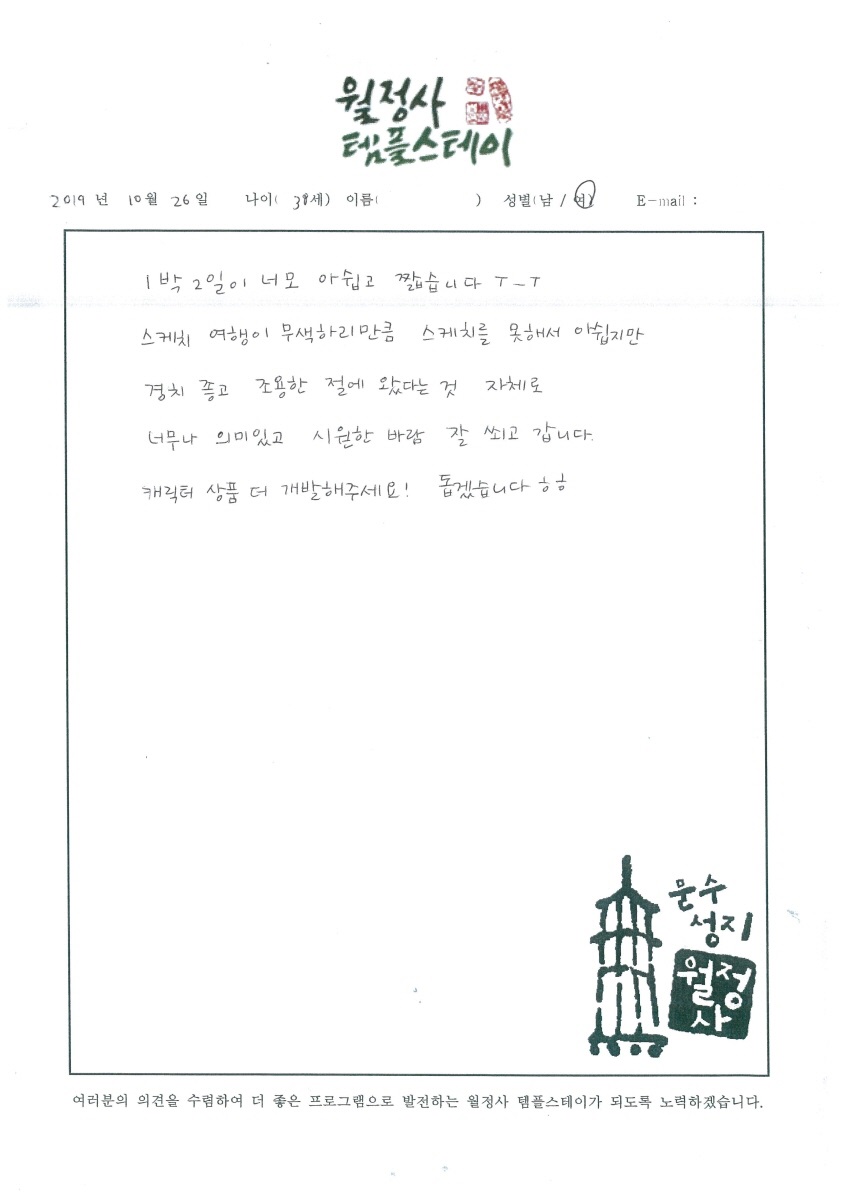 월정사
템플스테이
2019 년 10월 26일 나이( 38세) 이름( ) 성별(남 / 여) E-mail :
1박 2일이 너모 아쉽고 짧습니다 ㅜ_ㅜ
스케치 여행이 무색하리만큼 스케치를 못해서 아쉽지만
경치 좋고 조용한 절에 왔다는 것 자체로
너무나 의미있고 시원한 바람 잘 쐬고 갑니다.
캐릭터 상품 더 개발해주세요! 돕겠습니다 ㅎㅎ
문수
성지
월정
사
여러분의 의견을 수렴하여 더 좋은 프로그램으로 발전하는 월정사 템플스테이가 되도록 노력하겠습니다.